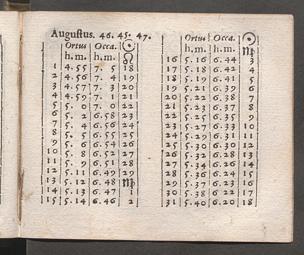 Augustus. 46. 45. 47.
Ortus Occa. ☉
h. m. h. m. ♌
1 4.55 7. 5 18
2 4.56 7. 4 19
3 4.57 7. 3 20
4 4.59 7. 1 21
5 5. 0 7. 0 22
6 5. 2 6.58 23
7 5. 4 6.56 24
8 5. 5 6.55 25
9 5. 6 6.54 26
10 5. 8 6.52 27
11 5. 9 6.51 28
12 5.11 6.49 29
13 5.12 6.48 ♍
14 5.13 6.47 1
15 5.14 6.46 2
Ortus Occa. ☉
h. m. h. m. ♍
16 5.16 6.44 3
17 5.18 6.42 4
18 5.19 6.41 5
19 5.21 6.39 6
20 5.22 6.38 7
21 5.23 6.37 8
22 5.25 6.35 9
23 5.27 6.33 10
24 5.29 6.31 11
25 5.30 6.30 12
26 5.32 6.28 13
27 5.34 6.26 14
28 5.36 6.24 15
29 5.37 6.23 16
30 5.38 6.22 17
31 5.40 6.20 18